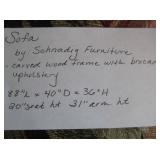 Sofa
by Schnadig Furniture
- carved wood frame with brocade
upholstery
88"L x 40"D x 36"H
20" seat ht 31" arm ht